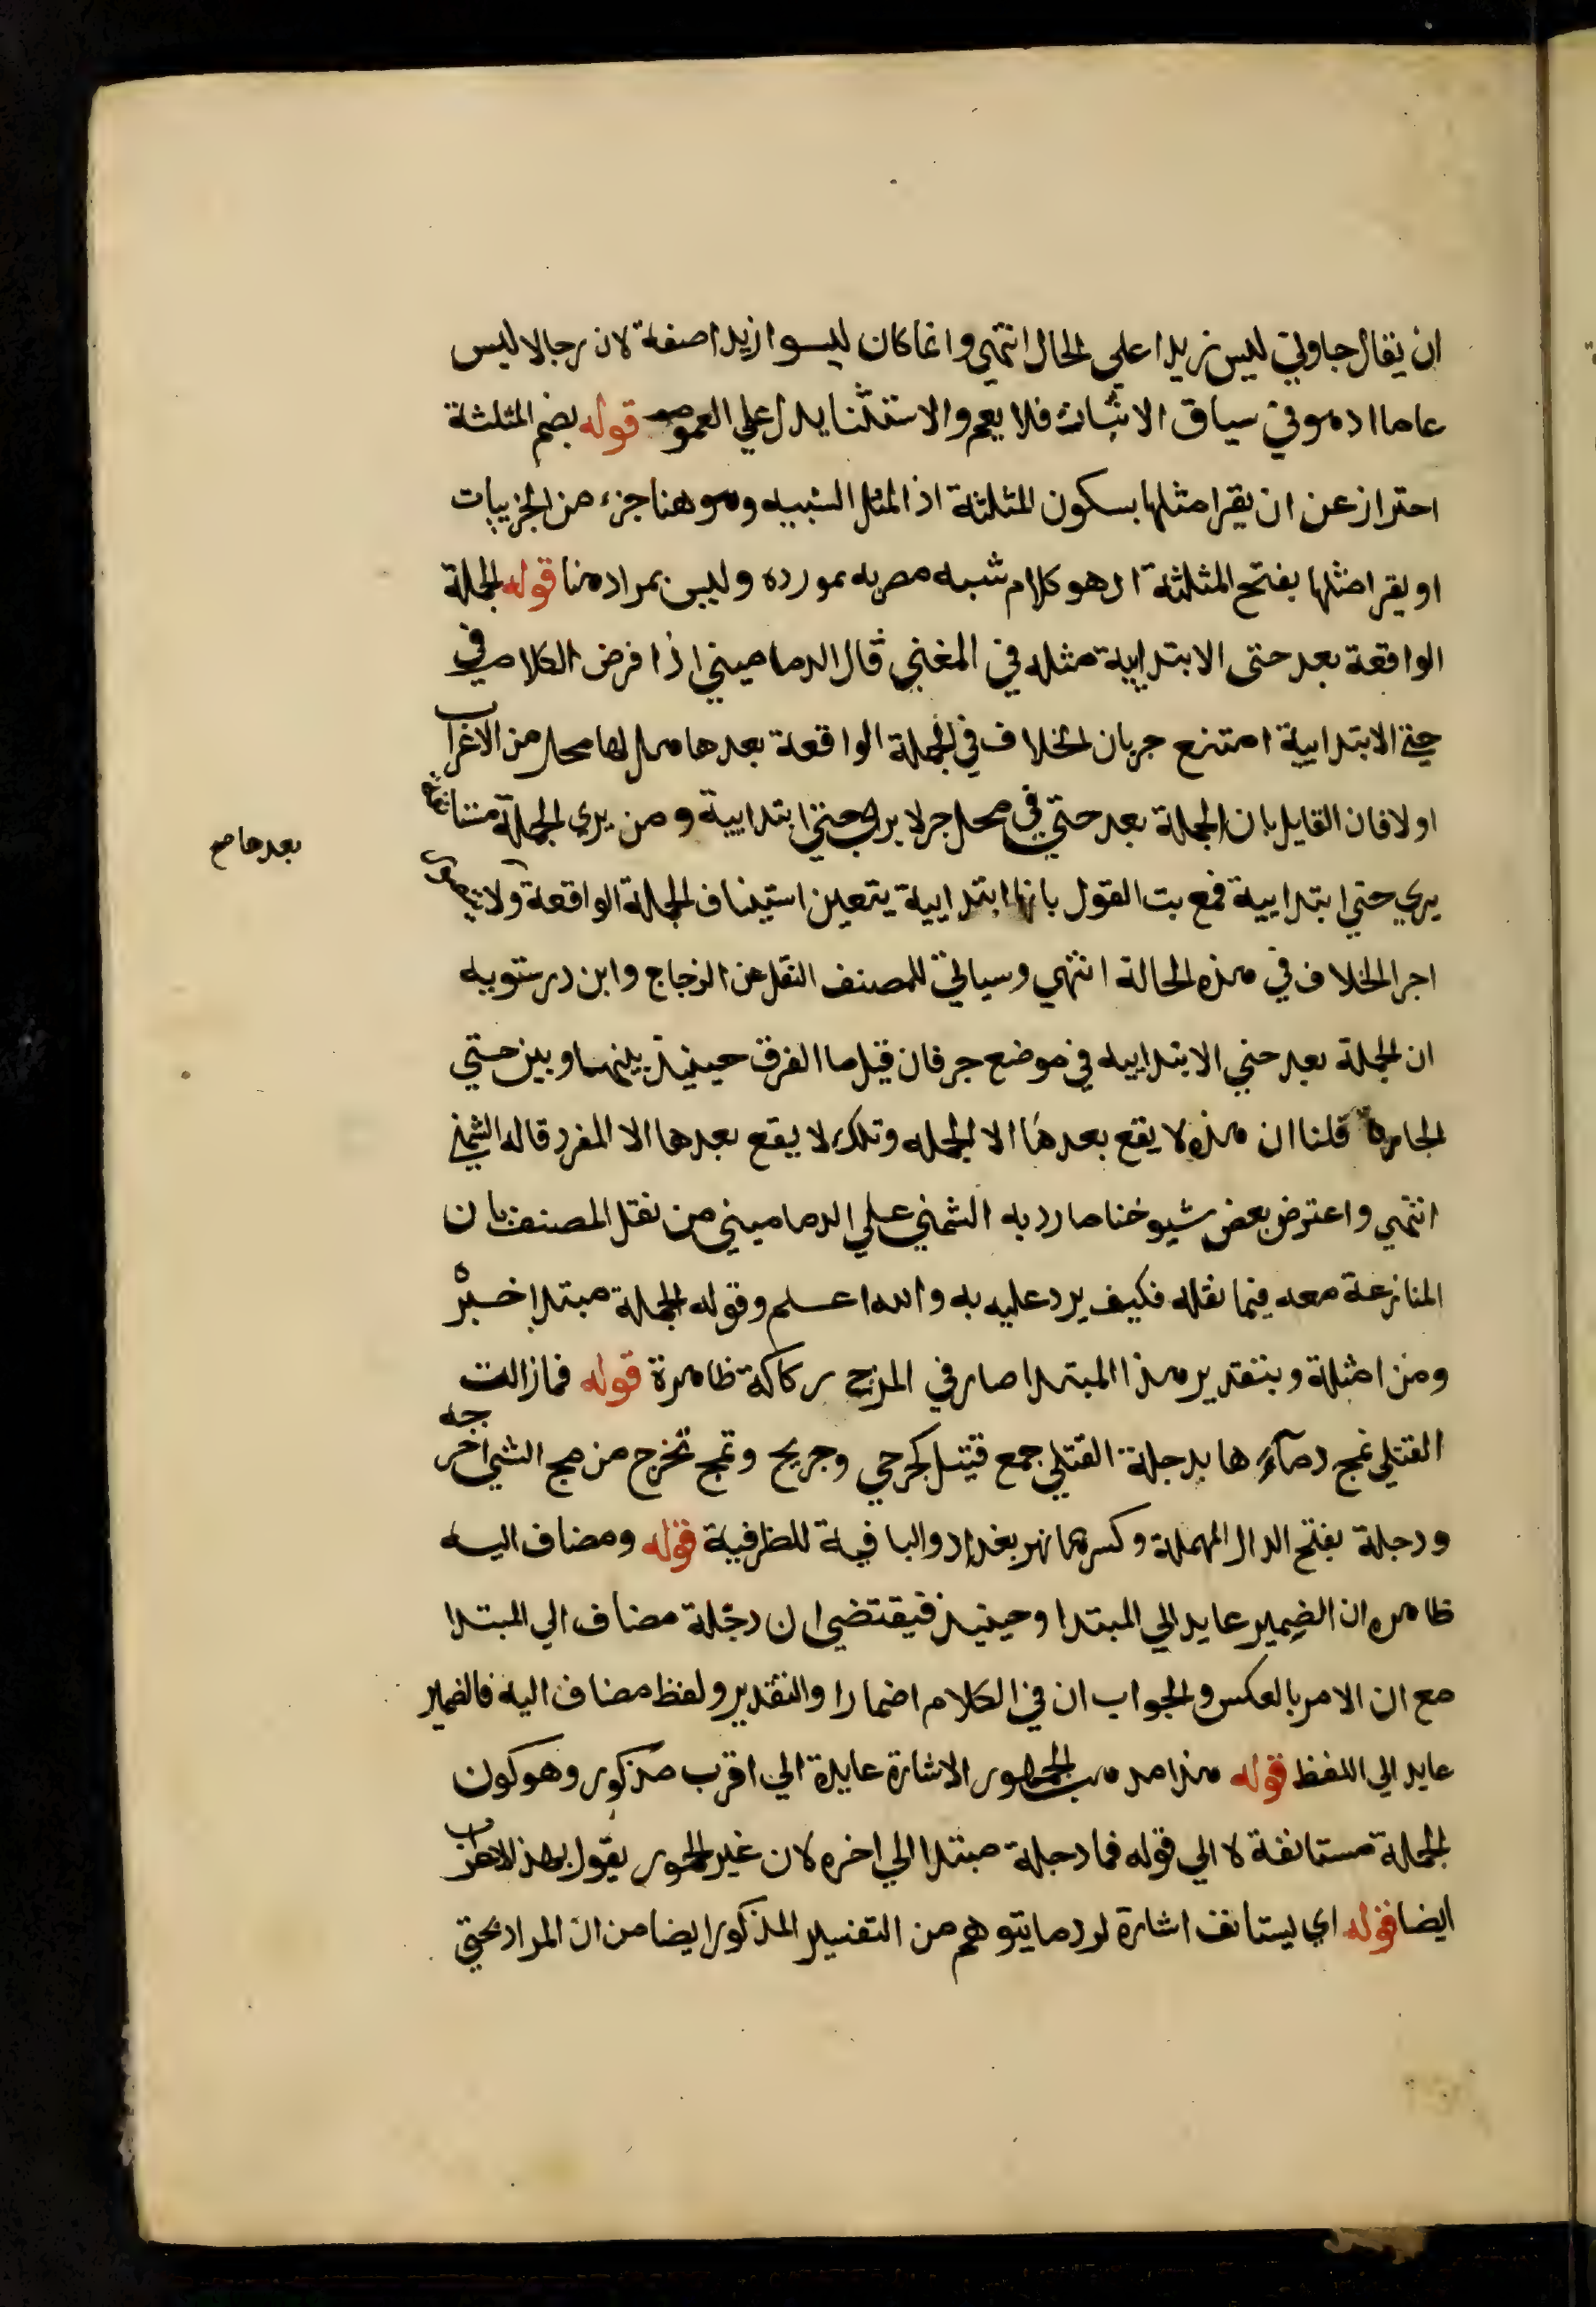 ان يقال جاوني ليس زيدا على الحال انتهي وانما كان ليسوا زيدا صفة لان رجالا ليس
عاما اذ هو في سياق الاثبات فلا يعم والاستثنا يدل علي العموم قوله بضم المثلثة
احتراز عن ان يقرا مثلها بسكون المثلثة اذ المثل الشبيه وهو هنا جزء من الجزييات
او يقرا مثلها بفتح المثلثة اذ هو كلام شبه مضربه بمورده وليس بمراد هنا قوله الجملة
الواقعة بعد حتى الابتدايية مثله في المغني قال الدماميني اذا فرض الكلام في
حتي الابتدايية امتنع جريان الخلاف في الجملة الواقعة بعدها هل لها محل من الاعراب
اولا فان القايل بان الجملة بعد حتي في محل جر لا يرى حتي ابتدايية ومن يري الجملة مستانفة
يري حتي ابتدايية فمع بت القول بانها ابتدايية يتعين استيناف الجملة الواقعة ولا يتصور
بعدها صح
اجرا الخلاف في هذه الحالة انتهي وسياتي للمصنف النقل عن الزجاج وابن درستويه
ان الجملة بعد حتي الابتداييه في موضع جر فان قيل ما الفرق حينيذ بينهما وبين حتي
الجارة قلنا ان هذه لا يقع بعدها الا الجمله وتلك لا يقع بعدها الا المفرد قاله الشمني
انتهي واعترض بعض شيوخنا ما رد به الشمني علي الدماميني من نقل المصنف بان
المنازعة معه فيما نقله فكيف يرد عليه به والله اعلم وقوله الجملة مبتدا خبره
ومن امثلة وبتقدير هذا المبتدا صار في المزج ركاكة ظاهرة قوله فما زالت
القتلي تمج دماءها بدجلة القتلي جمع قتيل كجرحي وجريح وتمج تخرج من مج الشي اخرجه
ودجلة بفتح الدال المهملة وكسرها نهر بغداد والبا فيه للظرفية قوله ومضاف اليه
ظاهره ان الضمير عايد الي المبتدا وحينيذ فيقتضي ان دجلة مضاف الي المبتدا
مع ان الامر بالعكس والجواب ان في الكلام اضمارا والتقدير ولفظ مضاف اليه فالضمير
عايد الي اللفظ قوله هذا مذهب الجمهور الاشارة عايدة الي اقرب مذكور وهو كون
الجملة مستانفة لا الي قوله فما دجلة مبتدا الي اخره لان غير الجمهور يقول بهذا الاعراب
ايضا قوله اي يستانف اشارة لرد ما يتوهم من التفسير المذكور ايضا من ان المراد بحتي